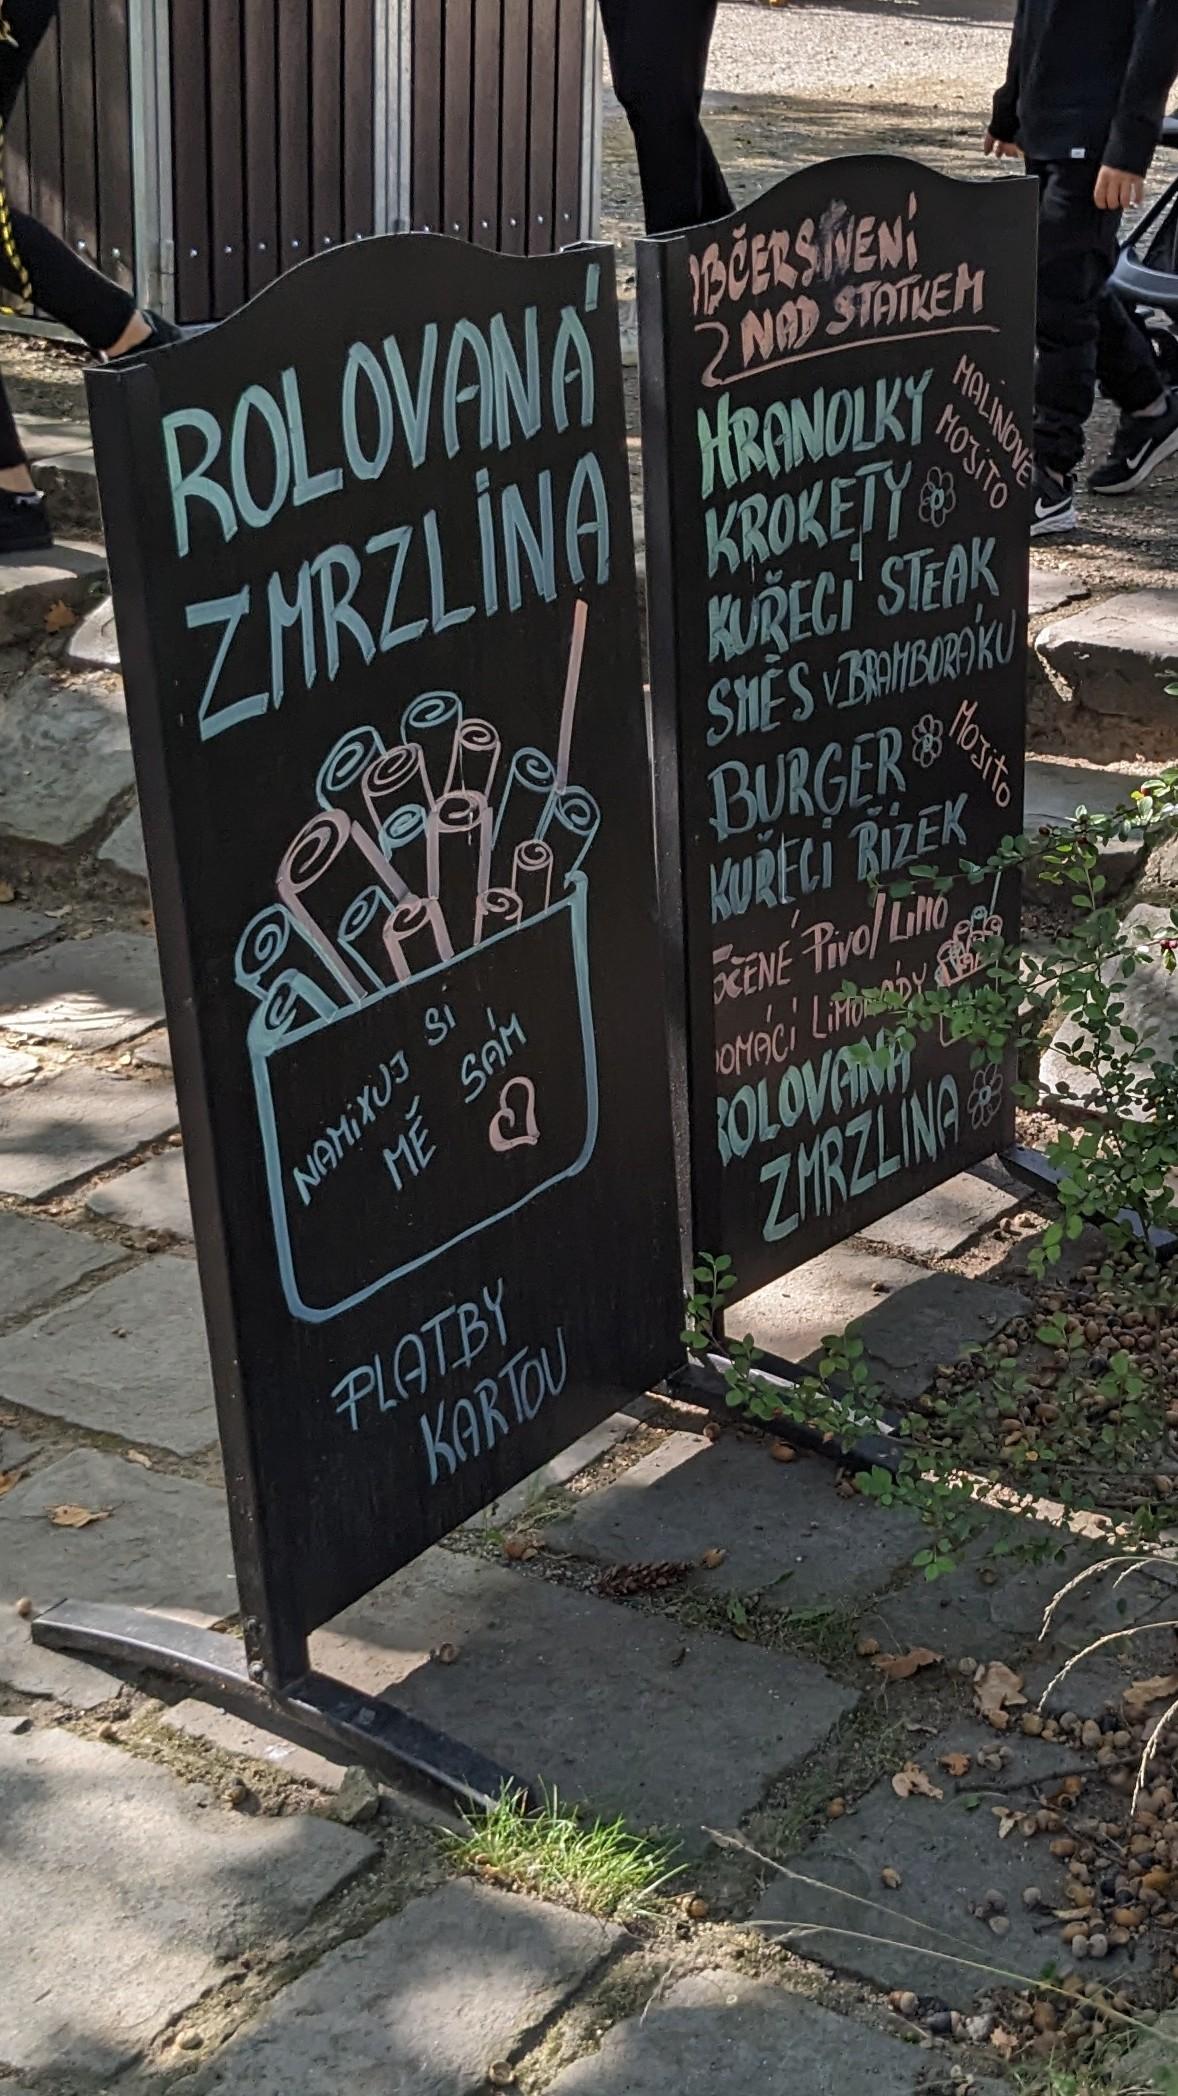 ROLOVANÁ
ZMRZLINA
NAMIXUJ SI
MĚ SÁM
PLATBY
KARTOU
OBČERSTVENÍ
NAD STATKEM
HRANOLKY
MALINOVÉ
MOJITO
KROKETY
KUŘECÍ STEAK
SMĚS V BRAMBORÁKU
BURGER
MOJITO
KUŘECÍ ŘÍZEK
TOČENÉ PIVO/LIMO
DOMÁCÍ LIMONÁDY
ROLOVANÁ
ZMRZLINA